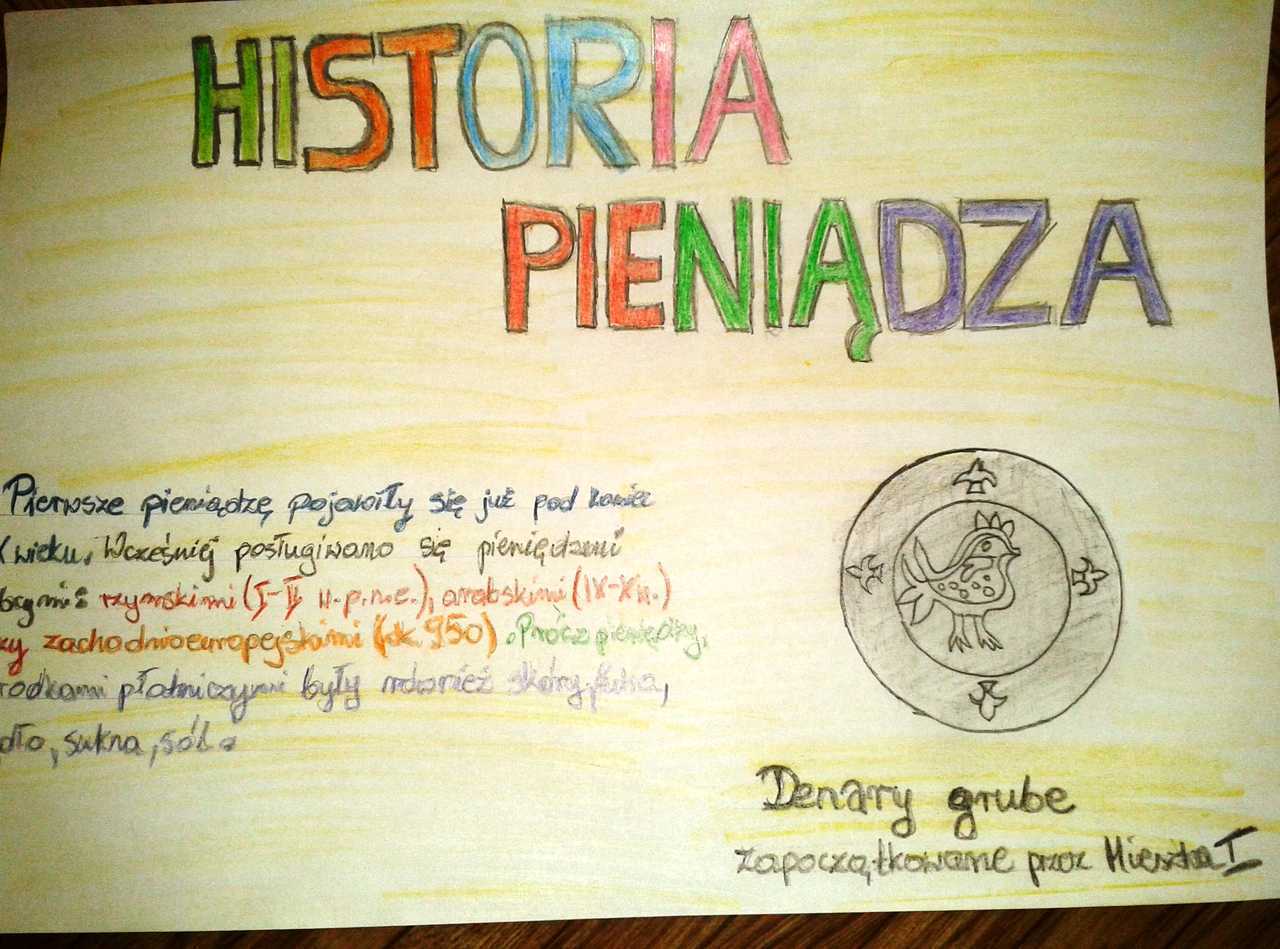 HISTORIA
PIENIĄDZA
Pierwsze pieniądzę pojawiły się już pod koniec
X wieku. Wcześniej posługiwano się pieniędzmi
rzymskimi (I-II w.p.n.e.), arabskimi (IX-X w.)
zachodnioeuropejskimi (ok. 950). Prócz pieniędzy,
płatniczymi były również skóry, futra,
sukna, sól.
Denary grube
zapoczątkowane przez Mieszka I